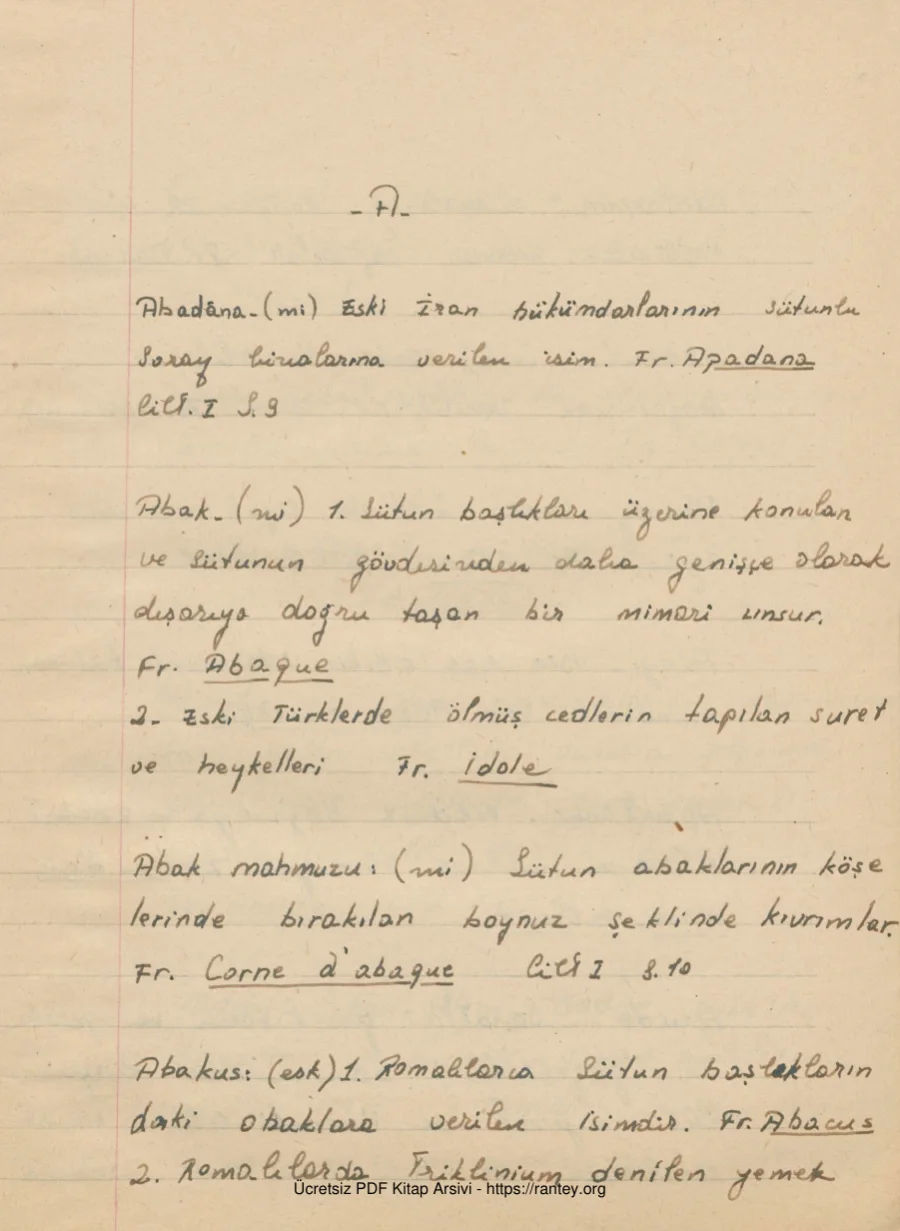 - A -
Abadâna - (mi) Eski İran hükündarlarının sütunlu
Saray binalarına verilen isim. Fr. Apadana
Cilt. I S. 9
Abak - (mi) 1. Sütun başlıkları üzerine konulan
ve sütunun gövdesinden daha genişçe olarak
dışarıya doğru taşan bir mimari unsur.
Fr. Abaque
2- Eski Türklerde ölmüş cedlerin tapılan suret
ve heykelleri Fr. İdole
Abak mahmuzu: (mi) Sütun abaklarının köşe
lerinde bırakılan boynuz şeklinde kıvrımlar.
Fr. Corne d'abaque Cilt I S. 10
Abakus: (esk) 1. Romalılarca Sütun başlıkların
daki abaklara verilen isimdir. Fr. Abacus
2. Romalılarda Triklinium denilen yemek
Ücretsiz PDF Kitap Arsivi - https://rantey.org